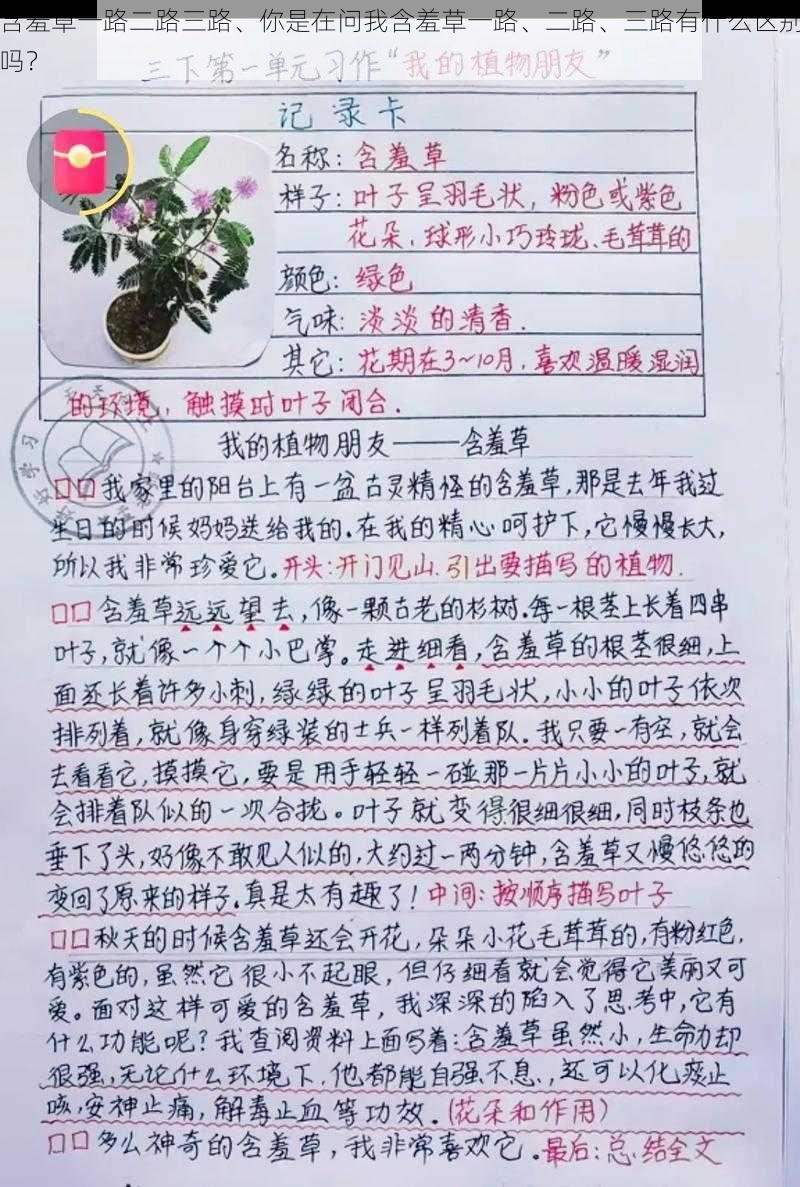 含羞草一路二路三路、你是在问我含羞草一路、二路、三路有什么区别
吗？
三下第一单元习作“我的植物朋友”
记录卡
名称：含羞草
样子：叶子呈羽毛状，粉色或紫色
花朵，球形小巧玲珑、毛茸茸的
颜色：绿色
气味：淡淡的清香．
其它：花期在3~10月，喜欢温暖湿润
的环境，，触摸时叶子闭合．
我的植物朋友——含羞草
口口我家里的阳台上有一盆古灵精怪的含羞草，那是去年我过
生日的时候妈妈送给我的．在我的精心呵护下，它慢慢长大，
所以我非常珍爱它．开头：开门见山．引出要描写的植物．
口口含羞草远远望去，像一颗古老的杉树．每一根茎上长着四串
叶子，就像一个个小巴掌。走进细看，含羞草的根茎很细，上
面还长着许多小刺，绿绿的叶子呈羽毛状，小小的叶子依次
排列着，就像身穿绿装的士兵一样列着队．我只要一有空，就会
去看看它，摸摸它，要是用手轻轻一碰那一片片小小的叶子，就
会排着队似的一次合拢。叶子就变得很细很细，同时枝条也
垂下了头，好像不敢见人似的，大约过一两分钟，含羞草又慢悠悠的
变回了原来的样子．真是太有趣了！中间：按顺序描写叶子
口口秋天的时候含羞草还会开花，朵朵小花毛茸茸的，有粉红色，
有紫色的，虽然它很小不起眼，但仔细看就会觉得它美丽又可
爱。面对这样可爱的含羞草，我深深的陷入了思考中，它有
什么功能呢？我查阅资料上面写着：含羞草虽然小，生命力却
很强，无论什么环境下，他都能自强不息．，还可以化痰止
咳，安神止痛，解毒止血等功效．（花朵和作用）
口口多么神奇的含羞草，我非常喜欢它．最后：总结全文